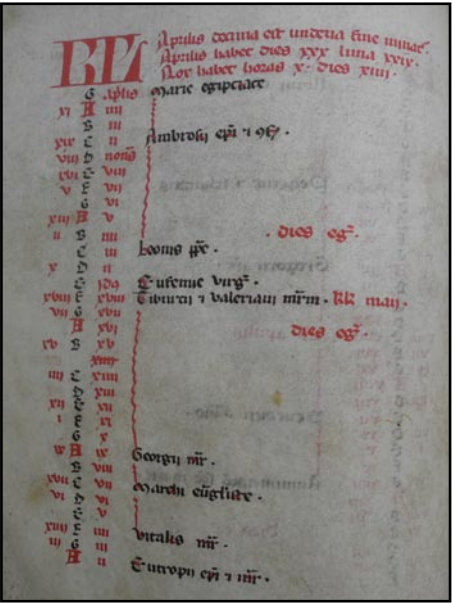 KL Aprilis decima est undena fine minat.
Aprilis habet dies xxx luna xxix.
Nox habet horas x. dies xiiii.
G aplis Marie egipciace
xi A iiii
B iii
xix C ii Ambrosij epi
viii D nonas
xvi E viii
v F vii
G vi
xiii A v
ii B iiii . dies eg.
C iii Leonis ppe.
x D ii
E idus Eufemie virg.
xviii F xviii Tiburcii ⁊ valeriani mrm. kl maii.
vii G xvii
A xvi dies eg.
xv B xv
xiiii
iiii C xiiii
D xiii
xii E xii
i F xi
G x
ix A ix Georgij mr.
B viii
xvii C vii Marchi eugliste.
vi D vi
E v
xiiii F iiii Vitalis mr.
iii G iii
A ii Eutropij epi ⁊ mr.